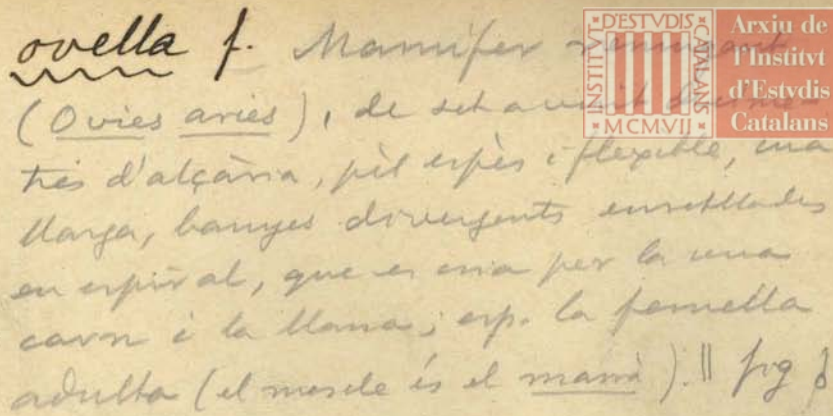 ovella f. Mamífer remugant
(Ovies aries), de set a vuit decíme-
tres d'alçària, pèl espès i flexible, cua
llarga, banyes divergents enrotllades
en espiral, que es cria per la seva
carn i la llana; esp. la femella
adulta (el mascle és el marrà). || fig
INSTITVT D'ESTVDIS CATALANS
MCMVII
Arxiu de
l'Institvt
d'Estvdis
Catalans